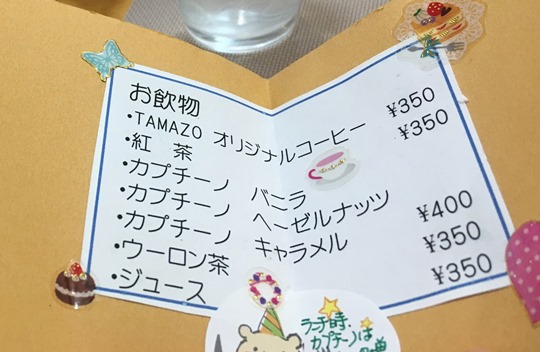 お飲物
・TAMAZO オリジナルコーヒー ¥350
・紅 茶 ¥350
・カプチーノ バニラ
・カプチーノ ヘーゼルナッツ
・カプチーノ キャラメル ¥400
・ウーロン茶 ¥350
・ジュース ¥350
ランチ時
カプチーノは